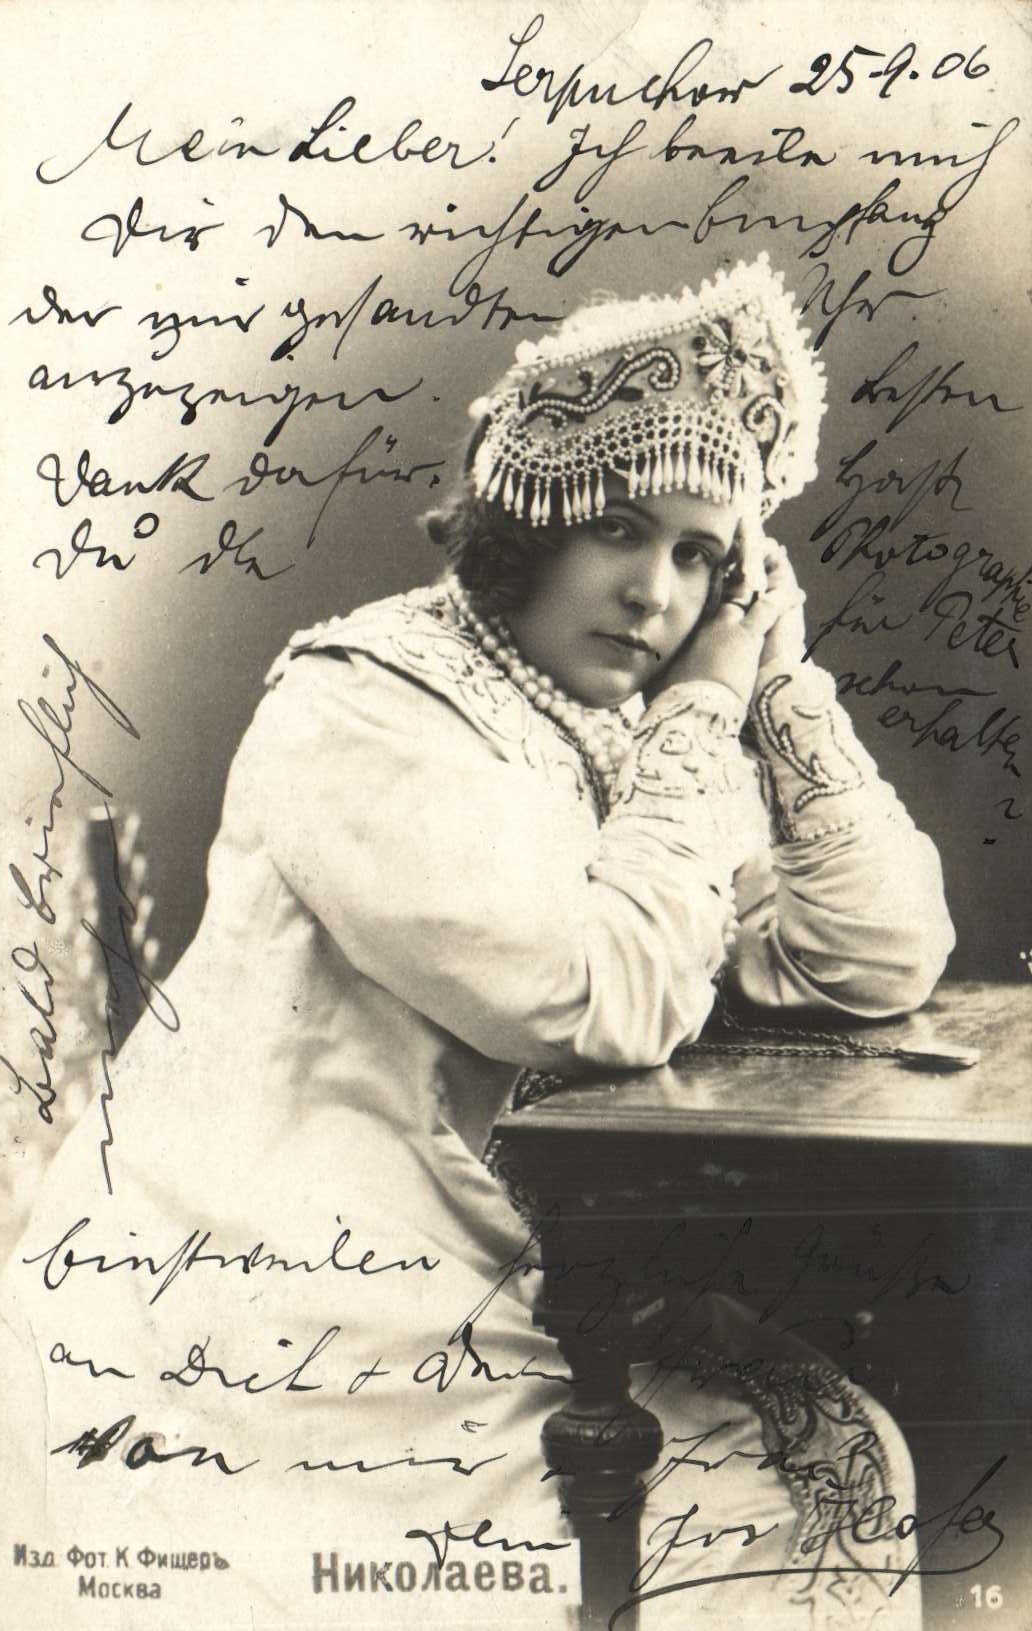 Serpuchow 25-9.06
Mein Lieber! Ich beeile mich
Dir den richtigen Empfang
der mir gesandten Uhr
anzuzeigen. Besten
Dank dafür. Hast
Du die Photographie
für Peter
schon
erhalten
?
Bald brieflich
mehr
Einstweilen herzliche Grüße
an Dich + Deine
von mir & Frau
Dein Jos
Изд. Фот. К Фишеръ
Москва
Николаева.
16